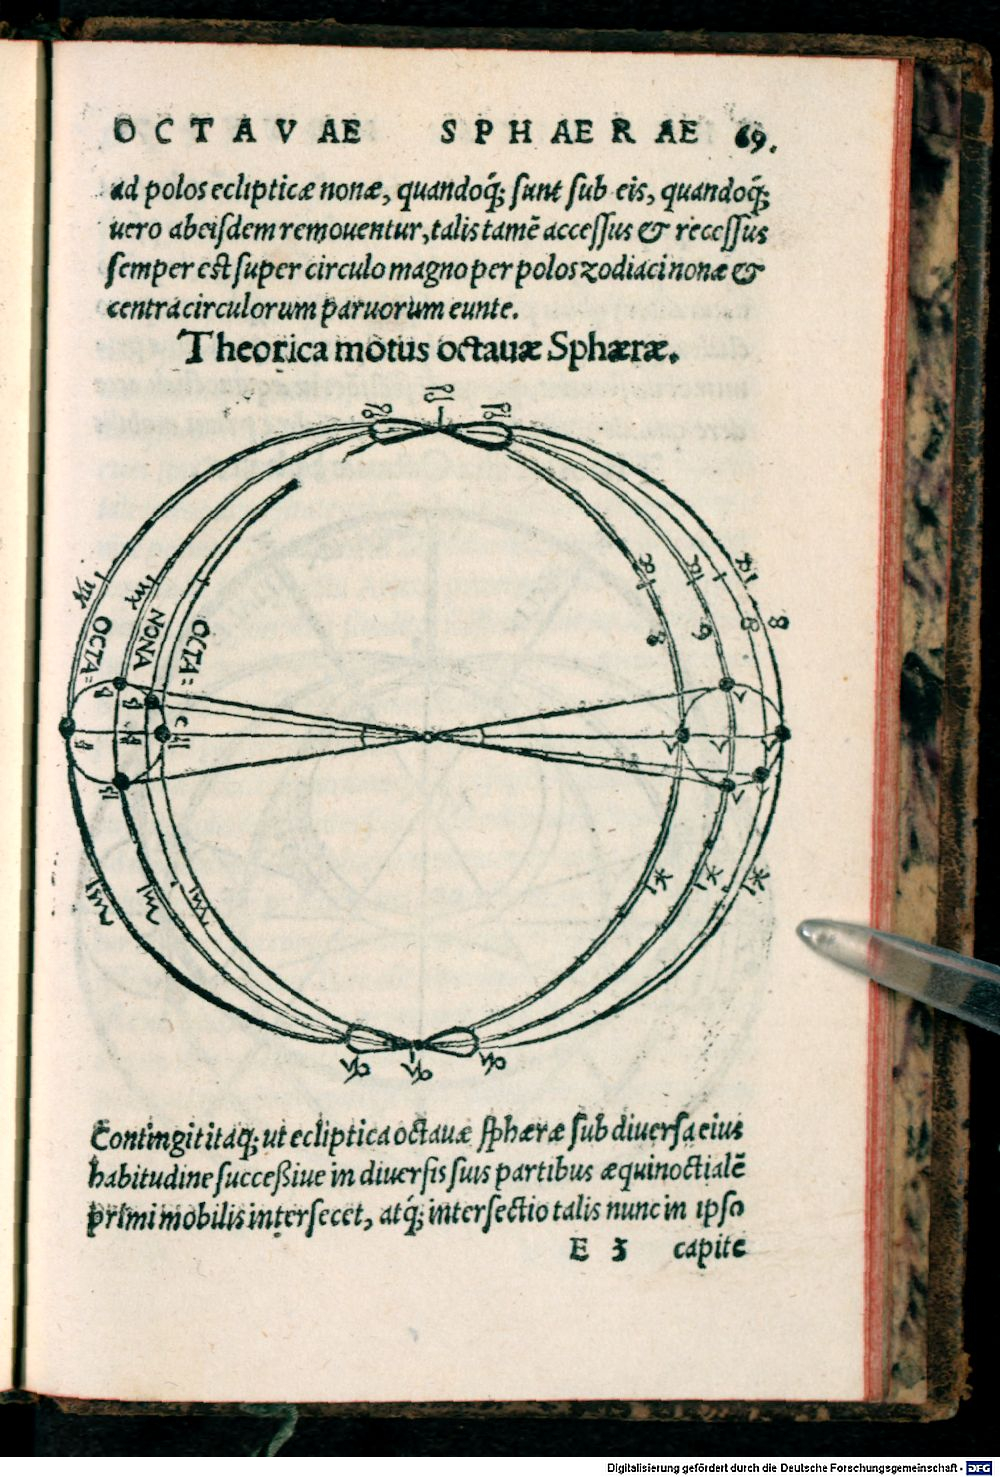 OCTAVAE SPHAERAE 69.
ad polos eclipticæ nonæ, quandoq́; sunt sub eis, quandoq́;
uero ab eisdem remouentur, talis tamẽ accessus & recessus
semper est super circulo magno per polos zodiaci nonæ &
centra circulorum paruorum eunte.
Theorica motus octauæ Sphæræ.
♋ ♋ ♋
OCTA=
NONA
OCTA=
♑ ♑ ♑
Contingit itaq; ut ecliptica octauæ sphæræ sub diuersa eius
habitudine successiue in diuersis suis partibus æquinoctialẽ
primi mobilis intersecet, atq́; intersectio talis nunc in ipso
E 3 capite
Digitalisierung gefördert durch die Deutsche Forschungsgemeinschaft - DFG